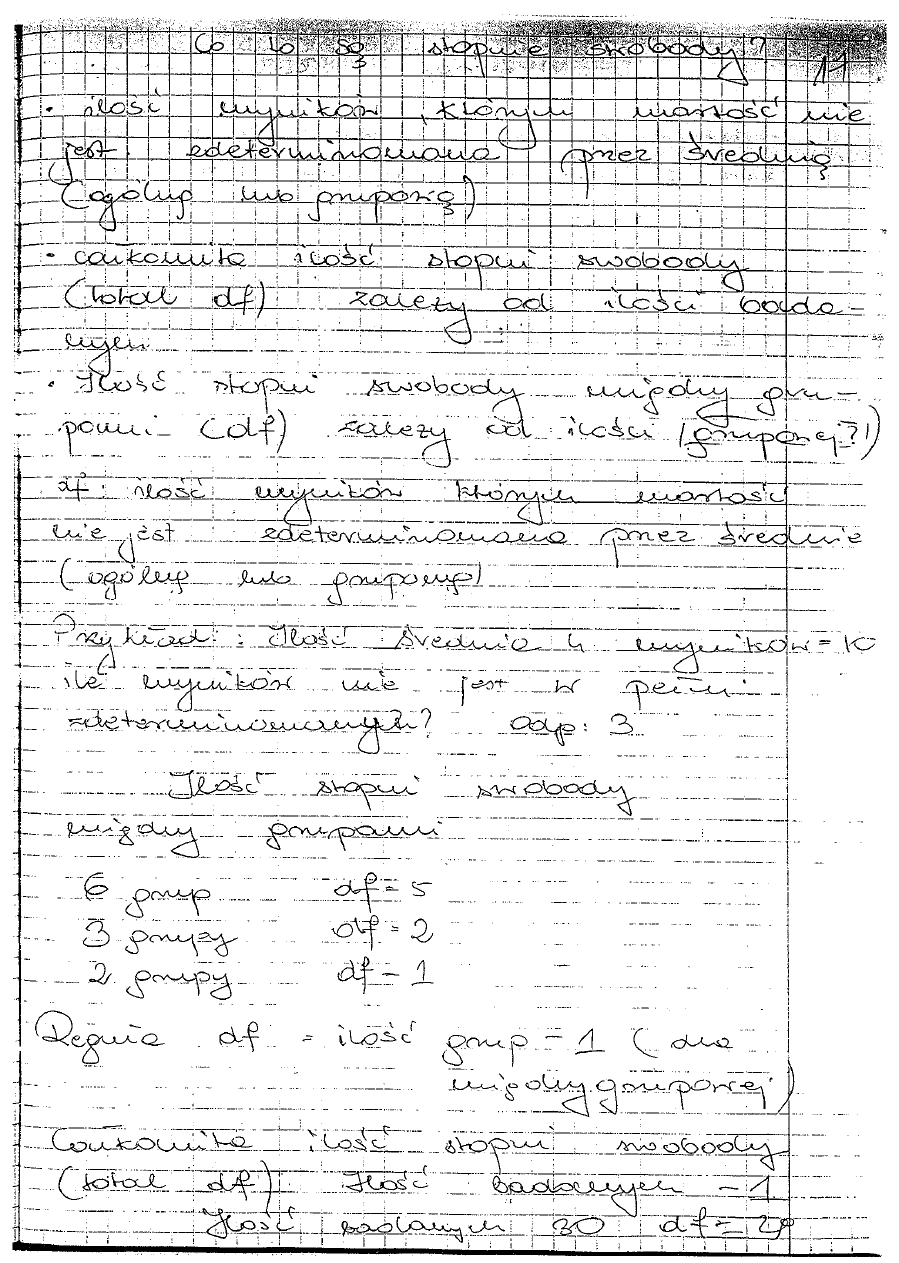 Co to są stopnie swobody?
11
• ilość wyników, których wartość nie
jest zdeterminowana przez średnią
(ogólną lub grupową)
• całkowita ilość stopni swobody
(total df) zależy od ilości bada-
nych
• Ilość stopni swobody między gru-
pami (df) zależy od ilości (grupowej?!)
df: ilość wyników których wartość
nie jest zdeterminowana przez średnie
(ogólną lub grupową)
Przykład: Ilość średnia 4 wyników = 10
ile wyników nie jest w pełni
zdeterminowanych? odp: 3
Ilość stopni swobody
między grupami
6 grup df = 5
3 grupy df = 2
2 grupy df = 1
Reguła df = ilość grup - 1 (dla
międzygrupowej)
Całkowita ilość stopni swobody
(total df) Ilość badanych - 1
Ilość badanych 30 df = 29